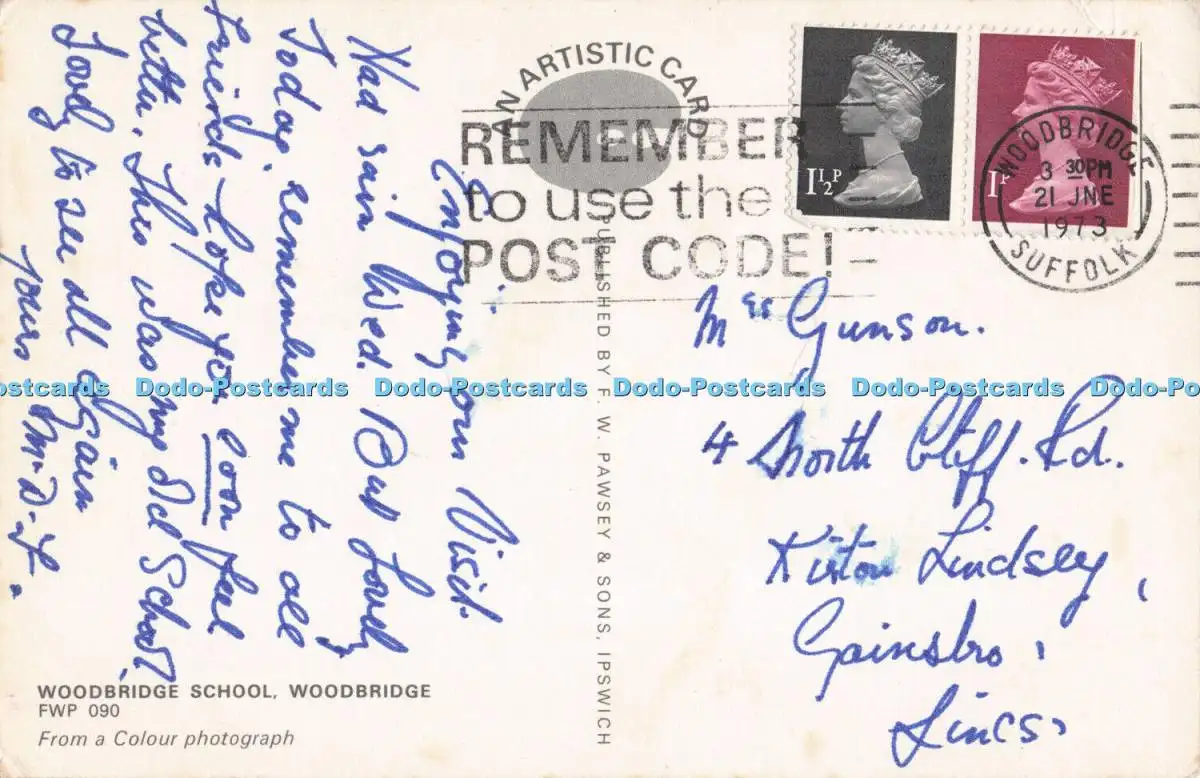 AN ARTISTIC CARD
REMEMBER
to use the
POST CODE!
1½P
1P
WOODBRIDGE
3 30PM
21 JNE
1973
SUFFOLK
Enjoying our Visit.
Had rain Wed. But Lovely
Today, remember me to all
Friends hope you soon feel
better. This was my Old School,
Lovely to see all again
Yours
PUBLISHED BY F. W. PAWSEY & SONS, IPSWICH
Mrs Gunson.
4 North Cliff. Rd.
Kirton Lindsey,
Gainsbro,
Lincs,
Dodo-Postcards Dodo-Postcards Dodo-Postcards Dodo-Postcards Dodo-Postcards Dodo-Postcards
WOODBRIDGE SCHOOL, WOODBRIDGE
FWP 090
From a Colour photograph